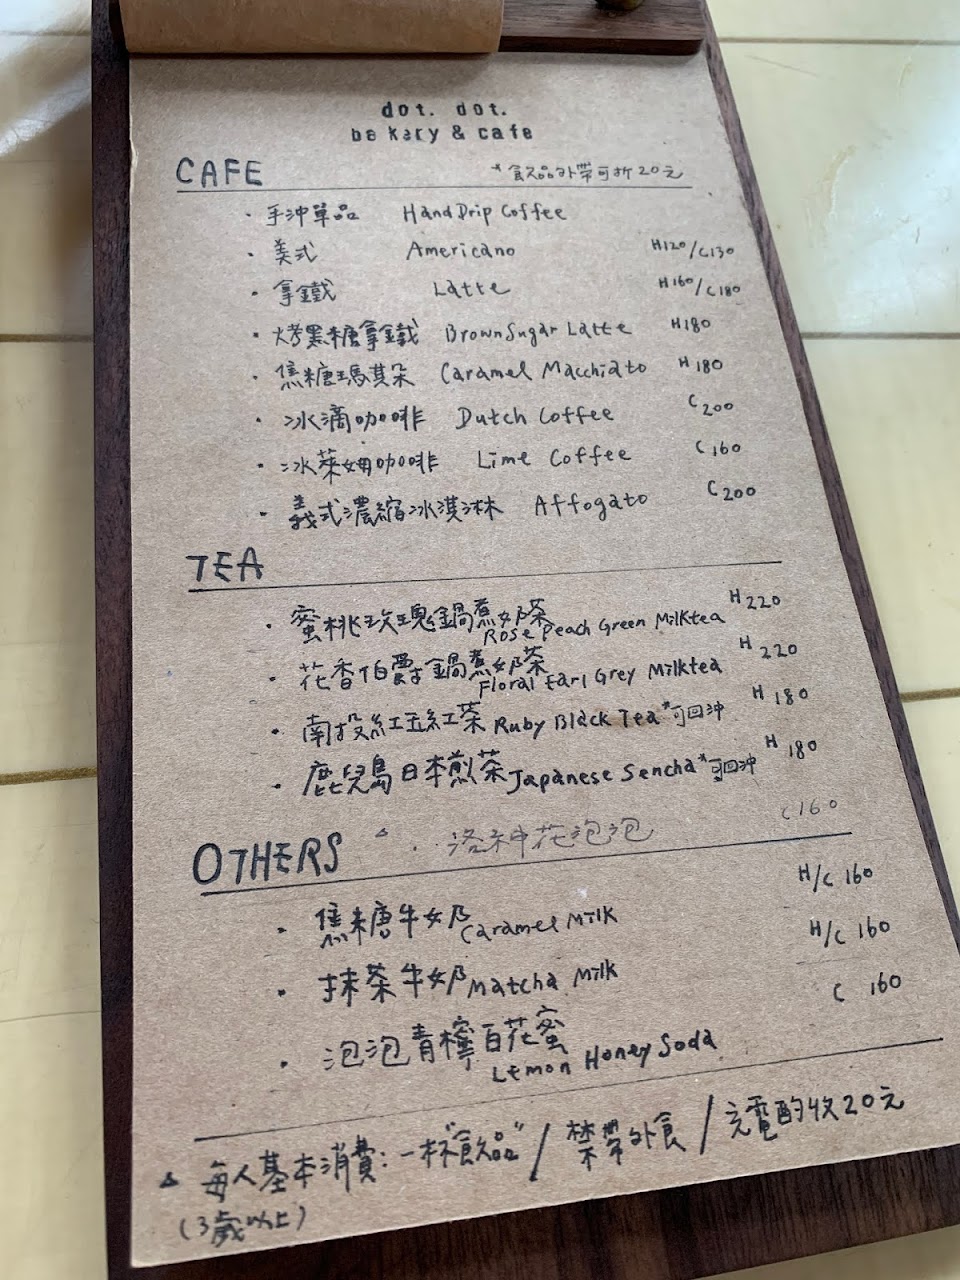 dot. dot.
bakery & cafe
CAFE *飲品外帶可折20元
· 手沖單品 Hand Drip Coffee
· 美式 Americano H120/C130
· 拿鐵 Latte H160/C180
· 烤黑糖拿鐵 Brown Sugar Latte H180
· 焦糖瑪其朵 Caramel Macchiato H180
· 冰滴咖啡 Dutch Coffee C200
· 冰萊姆咖啡 Lime Coffee C160
· 義式濃縮冰淇淋 Affogato C200
TEA
· 蜜桃玫瑰鍋煮奶茶 Rose Peach Green Milktea H220
· 花香伯爵鍋煮奶茶 Floral Earl Grey Milktea H220
· 南投紅玉紅茶 Ruby Black Tea *可回沖 H180
· 鹿兒島日本煎茶 Japanese Sencha *可回沖 H180
OTHERS △ · 洛神花泡泡 C160
· 焦糖牛奶 Caramel Milk H/C 160
· 抹茶牛奶 Matcha Milk H/C 160
· 泡泡青檸百花蜜 Lemon Honey Soda C 160
△ 每人基本消費:一杯"飲品" / 禁帶外食 / 充電酌收20元
(3歲以上)